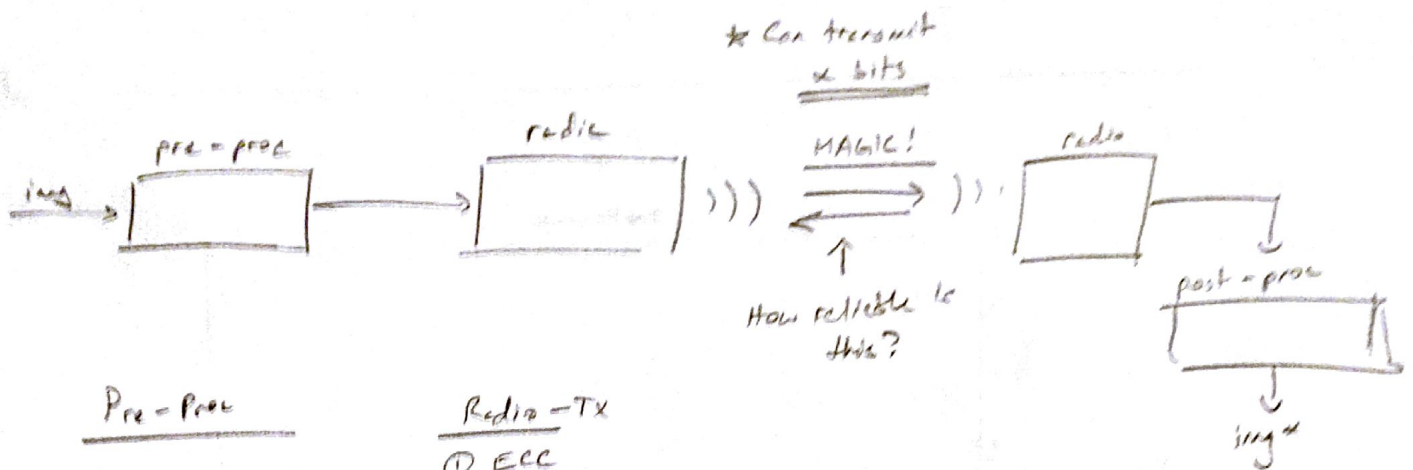 * Can transmit
x bits
pre-proc
radio
MAGIC!
radio
img
)))
)))
How reliable is
this?
post-proc
Pre-Proc
Radio-Tx
① ECC
img*